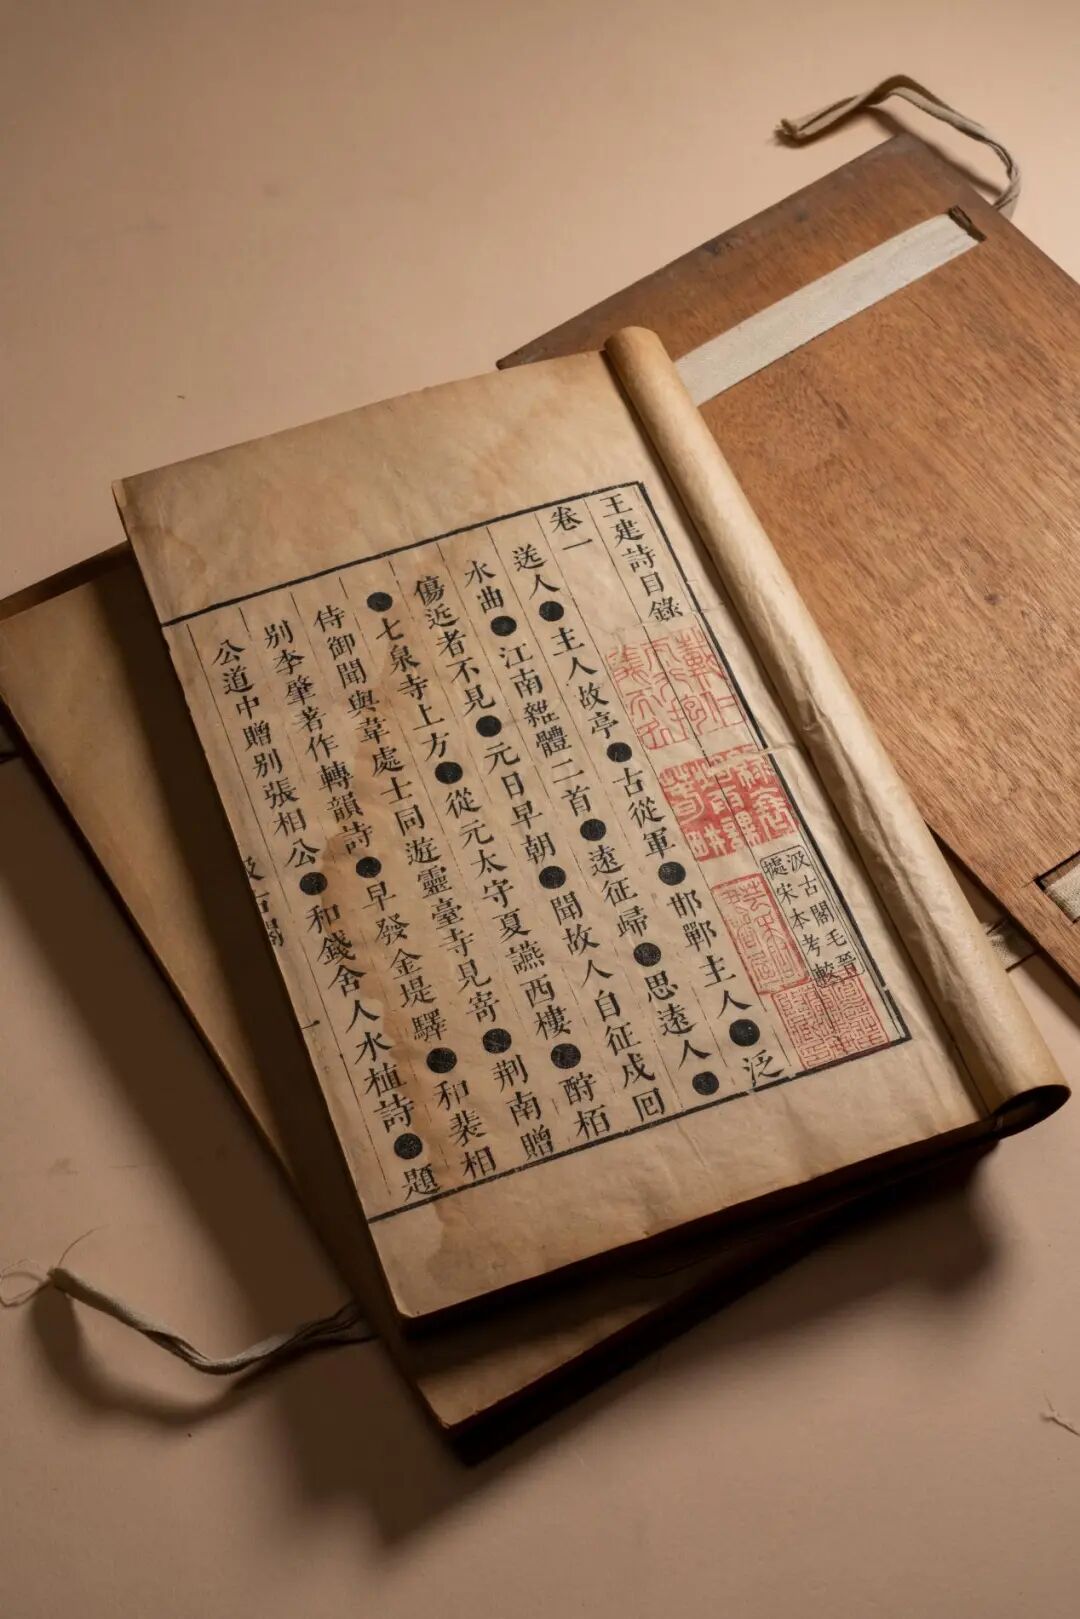 王建詩目錄
汲古閣毛晉
據宋本考較
卷一
送人●主人故亭●古從軍●邯鄲主人●泛
水曲●江南雜體二首●遠征歸●思遠人●
傷近者不見●元日早朝●聞故人自征戍囘
●七泉寺上方●從元太守夏讌西樓●酧栢
侍御聞與韋處士同遊靈臺寺見寄●荆南贈
別李肇著作轉韻詩●早發金堤驛●和裴相
公道中贈別張相公●和錢舍人水植詩●題
汲古閣
一